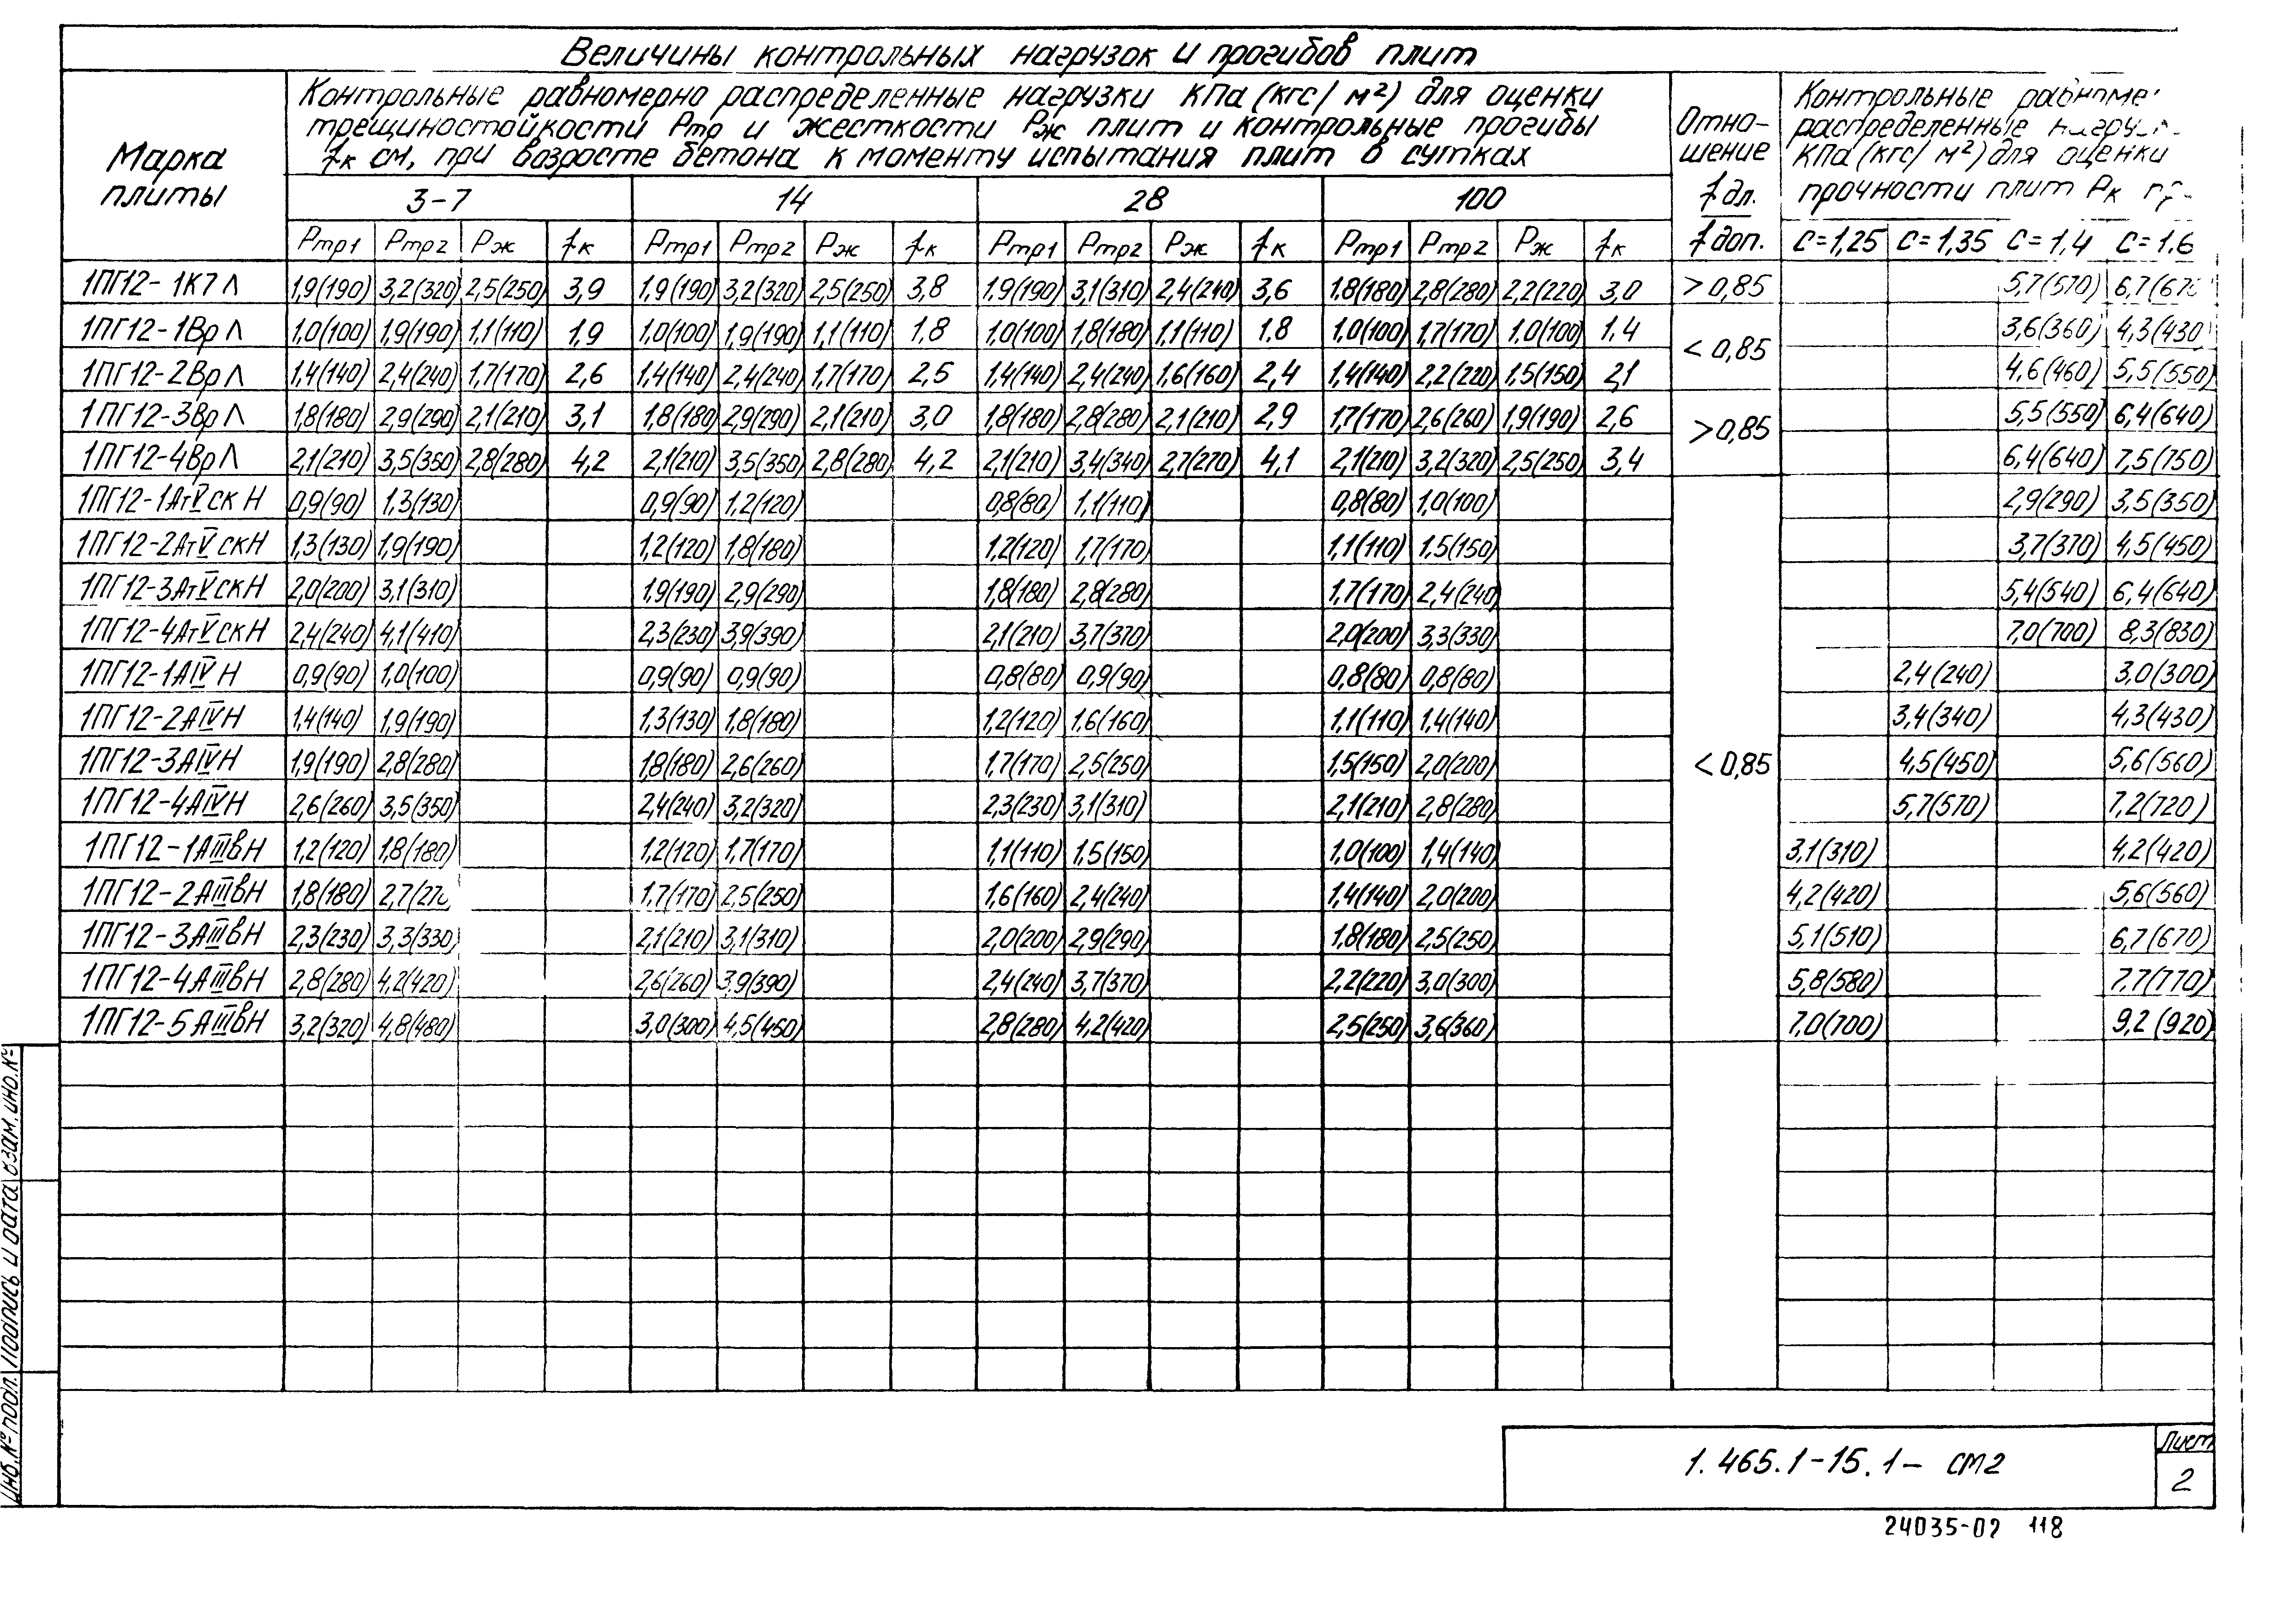 Величины контрольных нагрузок и прогибов плит
Марка плиты
Контрольные равномерно распределенные нагрузки КПа (кгс/м²) для оценки
трещиностойкости Ртр и жесткости Рж плит и контрольные прогибы
fк см, при возросте бетона к моменту испытания плит в сутках
Отно-
шение
f дл.
f доп.
Контрольные
распределенные
КПа (кгс/м²) для оценки
прочности плит Рк
3-7 14 28 100
Ртр1 Ртр2 Рж fк Ртр1 Ртр2 Рж fк Ртр1 Ртр2 Рж fк Ртр1 Ртр2 Рж fк С=1,25 С=1,35 С=1,4 С=1,6
1ПГ12-1К7Л 1,9(190) 3,2(320) 2,5(250) 3,9 1,9(190) 3,2(320) 2,5(250) 3,8 1,9(190) 3,1(310) 2,4(240) 3,6 1,8(180) 2,8(280) 2,2(220) 3,0 >0,85 5,7(570) 6,7(670)
1ПГ12-1ВрЛ 1,0(100) 1,9(190) 1,1(110) 1,9 1,0(100) 1,9(190) 1,1(110) 1,8 1,0(100) 1,8(180) 1,1(110) 1,8 1,0(100) 1,7(170) 1,0(100) 1,4 <0,85 3,6(360) 4,3(430)
1ПГ12-2ВрЛ 1,4(140) 2,4(240) 1,7(170) 2,6 1,4(140) 2,4(240) 1,7(170) 2,5 1,4(140) 2,4(240) 1,6(160) 2,4 1,4(140) 2,2(220) 1,5(150) 2,1 4,6(460) 5,5(550)
1ПГ12-3ВрЛ 1,8(180) 2,9(290) 2,1(210) 3,1 1,8(180) 2,9(290) 2,1(210) 3,0 1,8(180) 2,8(280) 2,1(210) 2,9 1,7(170) 2,6(260) 1,9(190) 2,6 >0,85 5,5(550) 6,4(640)
1ПГ12-4ВрЛ 2,1(210) 3,5(350) 2,8(280) 4,2 2,1(210) 3,5(350) 2,8(280) 4,2 2,1(210) 3,4(340) 2,7(270) 4,1 2,1(210) 3,2(320) 2,5(250) 3,4 6,4(640) 7,5(750)
1ПГ12-1АтVскН 0,9(90) 1,3(130) 0,9(90) 1,2(120) 0,8(80) 1,1(110) 0,8(80) 1,0(100) 2,9(290) 3,5(350)
1ПГ12-2АтVскН 1,3(130) 1,9(190) 1,2(120) 1,8(180) 1,2(120) 1,7(170) 1,1(110) 1,5(150) 3,7(370) 4,5(450)
1ПГ12-3АтVскН 2,0(200) 3,1(310) 1,9(190) 2,9(290) 1,8(180) 2,8(280) 1,7(170) 2,4(240) 5,4(540) 6,4(640)
1ПГ12-4АтVскН 2,4(240) 4,1(410) 2,3(230) 3,9(390) 2,1(210) 3,7(370) 2,0(200) 3,3(330) 7,0(700) 8,3(830)
1ПГ12-1АIVН 0,9(90) 1,0(100) 0,9(90) 0,9(90) 0,8(80) 0,9(90) 0,8(80) 0,8(80) 2,4(240) 3,0(300)
1ПГ12-2АIVН 1,4(140) 1,9(190) 1,3(130) 1,8(180) 1,2(120) 1,6(160) 1,1(110) 1,4(140) 3,4(340) 4,3(430)
1ПГ12-3АIVН 1,9(190) 2,8(280) 1,8(180) 2,6(260) 1,7(170) 2,5(250) 1,5(150) 2,0(200) <0,85 4,5(450) 5,6(560)
1ПГ12-4АIVН 2,6(260) 3,5(350) 2,4(240) 3,2(320) 2,3(230) 3,1(310) 2,1(210) 2,8(280) 5,7(570) 7,2(720)
1ПГ12-1АIIIвН 1,2(120) 1,8(180) 1,2(120) 1,7(170) 1,1(110) 1,5(150) 1,0(100) 1,4(140) 3,1(310) 4,2(420)
1ПГ12-2АIIIвН 1,8(180) 2,7(270 1,7(170) 2,5(250) 1,6(160) 2,4(240) 1,4(140) 2,0(200) 4,2(420) 5,6(560)
1ПГ12-3АIIIвН 2,3(230) 3,3(330) 2,1(210) 3,1(310) 2,0(200) 2,9(290) 1,8(180) 2,5(250) 5,1(510) 6,7(670)
1ПГ12-4АIIIвН 2,8(280) 4,2(420) 2,6(260) 3,9(390) 2,4(240) 3,7(370) 2,2(220) 3,0(300) 5,8(580) 7,7(770)
1ПГ12-5АIIIвН 3,2(320) 4,8(480) 3,0(300) 4,5(450) 2,8(280) 4,2(420) 2,5(250) 3,6(360) 7,0(700) 9,2(920)
Инв.№ подл. Подпись и дата Взам.инв.№
1.465.1-15.1- СМ2
Лист
2
24035-02 118